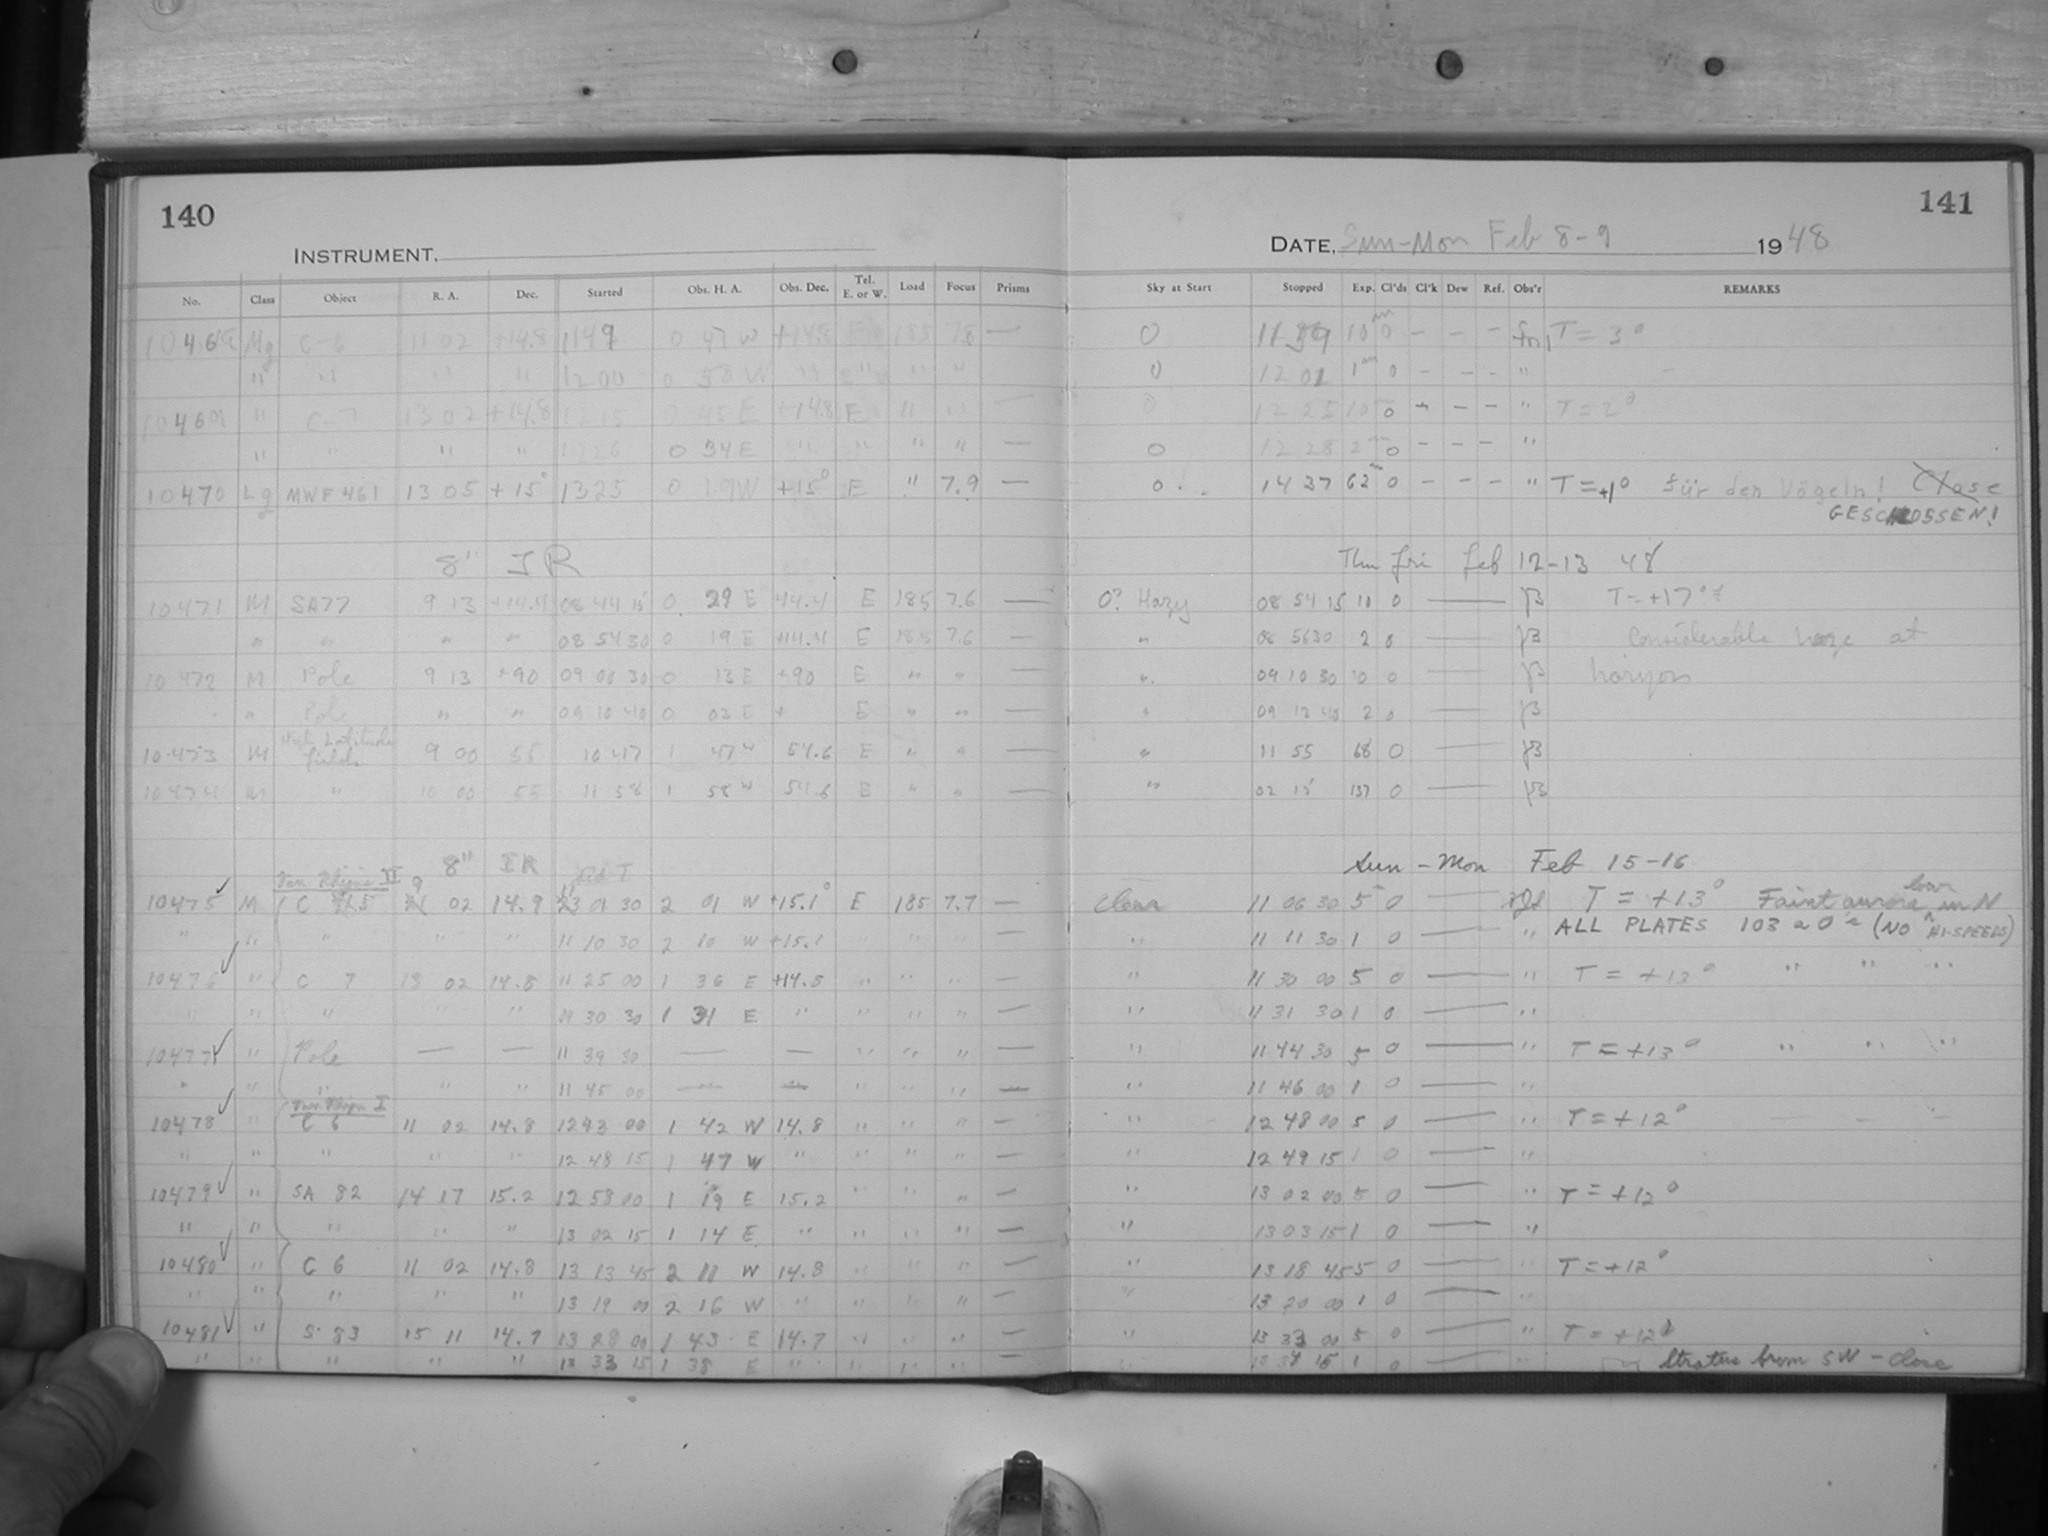 140
141
INSTRUMENT.
DATE. Sun-Mon Feb 8-9 1948
No. Class Object R. A. Dec. Started Obs. H. A. Obs. Dec. Tel. E. or W. Load Focus Prisms Sky at Start Stopped Exp. Cl'ds Cl'k Dew Ref. Obs'r REMARKS
10468 Mg C-6 11 02 +14.8 1149 0 47 W +14.8 E 185 7.8 — 0 11 59 10m 0 - - - T = 3°
" " " " " 1200 0 58 W " " " " 0 12 01 1m 0 - - - "
10469 " C-7 13 02 +14.8 1215 0 45 E +14.8 E " " — 0 12 25 10 0 - - - " T = 2°
" " " " 1226 0 34 E " " " " — 0 12 28 2m 0 - - - "
10470 Lg MWF 461 13 05 +15° 1325 0 19W +15° E " 7.9 — 0 14 37 62m 0 - - - " T = +1° für den Vögeln! Close
GESCHLOSSEN!
8" IR Thu Fri Feb 12-13 48
10471 M SA77 9 13 +14.4 08 44 15 0 29 E 44.4 E 185 7.6 — 0? Hazy 08 54 15 10 0 — T = +17°
" " " " " 08 54 30 0 19 E +14.4 E 185 7.6 — " 08 56 30 2 0 — Considerable haze at
10472 M Pole 9 13 +90 09 00 30 0 13 E +90 E " " — " 09 10 30 10 0 — horizon
" " Pole " " 09 10 40 0 03 E + E " " — " 09 12 40 2 0 —
10473 M High Latitude fields 9 00 55 10 47 1 47 W 54.6 E " " — " 11 55 68 0 —
10474 M " 10 00 55 11 58 1 58 W 54.6 E " " — " 02 15 137 0 —
8" IR Sun - Mon Feb 15-16
II
10475 ✓ M C 5 9 02 14.9 11 01 30 2 01 W +15.1° E 185 7.7 — Clear 11 06 30 5 0 — T = +13° Faint aurora low in N
" " " " " 11 10 30 2 10 W +15.1 " " " — " 11 11 30 1 0 — " ALL PLATES 103 a O's (NO HI-SPEEDS)
10476 ✓ " C 7 13 02 14.8 11 25 00 1 36 E +14.5 " " " — " 11 30 00 5 0 — " T = +13° " " "
" " " " " 11 30 30 1 31 E " " " " — " 11 31 30 1 0 — "
10477 ✓ " Pole — — 11 39 30 — — " " " — " 11 44 30 5 0 — " T = +13° " " "
" " " " " 11 45 00 — — " " " — " 11 46 00 1 0 — "
I
10478 ✓ " C 6 11 02 14.8 12 43 00 1 42 W 14.8 " " " — " 12 48 00 5 0 — " T = +12°
" " " " " 12 48 15 1 47 W " " " " — " 12 49 15 1 0 — "
10479 ✓ " SA 82 14 17 15.2 12 58 00 1 19 E 15.2 " " " — " 13 02 00 5 0 — " T = +12°
" " " " " 13 02 15 1 14 E " " " " — " 13 03 15 1 0 — "
10480 ✓ " C 6 11 02 14.8 13 13 45 2 11 W 14.8 " " " — " 13 18 45 5 0 — " T = +12°
" " " " " 13 19 00 2 16 W " " " " — " 13 20 00 1 0 — "
10481 ✓ " S 83 15 11 14.7 13 28 00 1 43 E 14.7 " " " — " 13 33 00 5 0 — " T = +12°
" " " " " 13 33 15 1 38 E " " " " — " 13 34 15 1 0 — " Stratus from SW - close